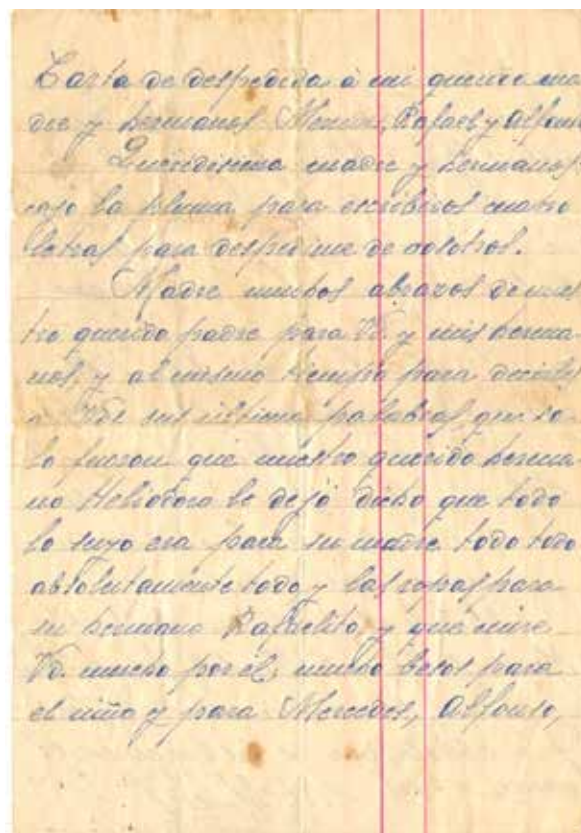 Carta de despedida á mi querida ma
dre y hermanos Rafael y Alfonso
Queridisima madre y hermanos
cojo la pluma para escribiros cuatro
letras para despedirme de vosotros.
Madre muchos abrazos de nues
tro querido padre para Vd. y mis herma
nos, y al mismo tiempo para decirles
a Vds sus ultima palabras, que so
lo fueron que nuestro querido herma
no Heliodoro le dejó dicho que todo
lo suyo era para su madre todo todo
absolutamente todo y las ropas para
su hermano Rafaelito, y que mire
Vd. mucho por el, mucho besos para
el niño y para Mercedes, Alfonso,